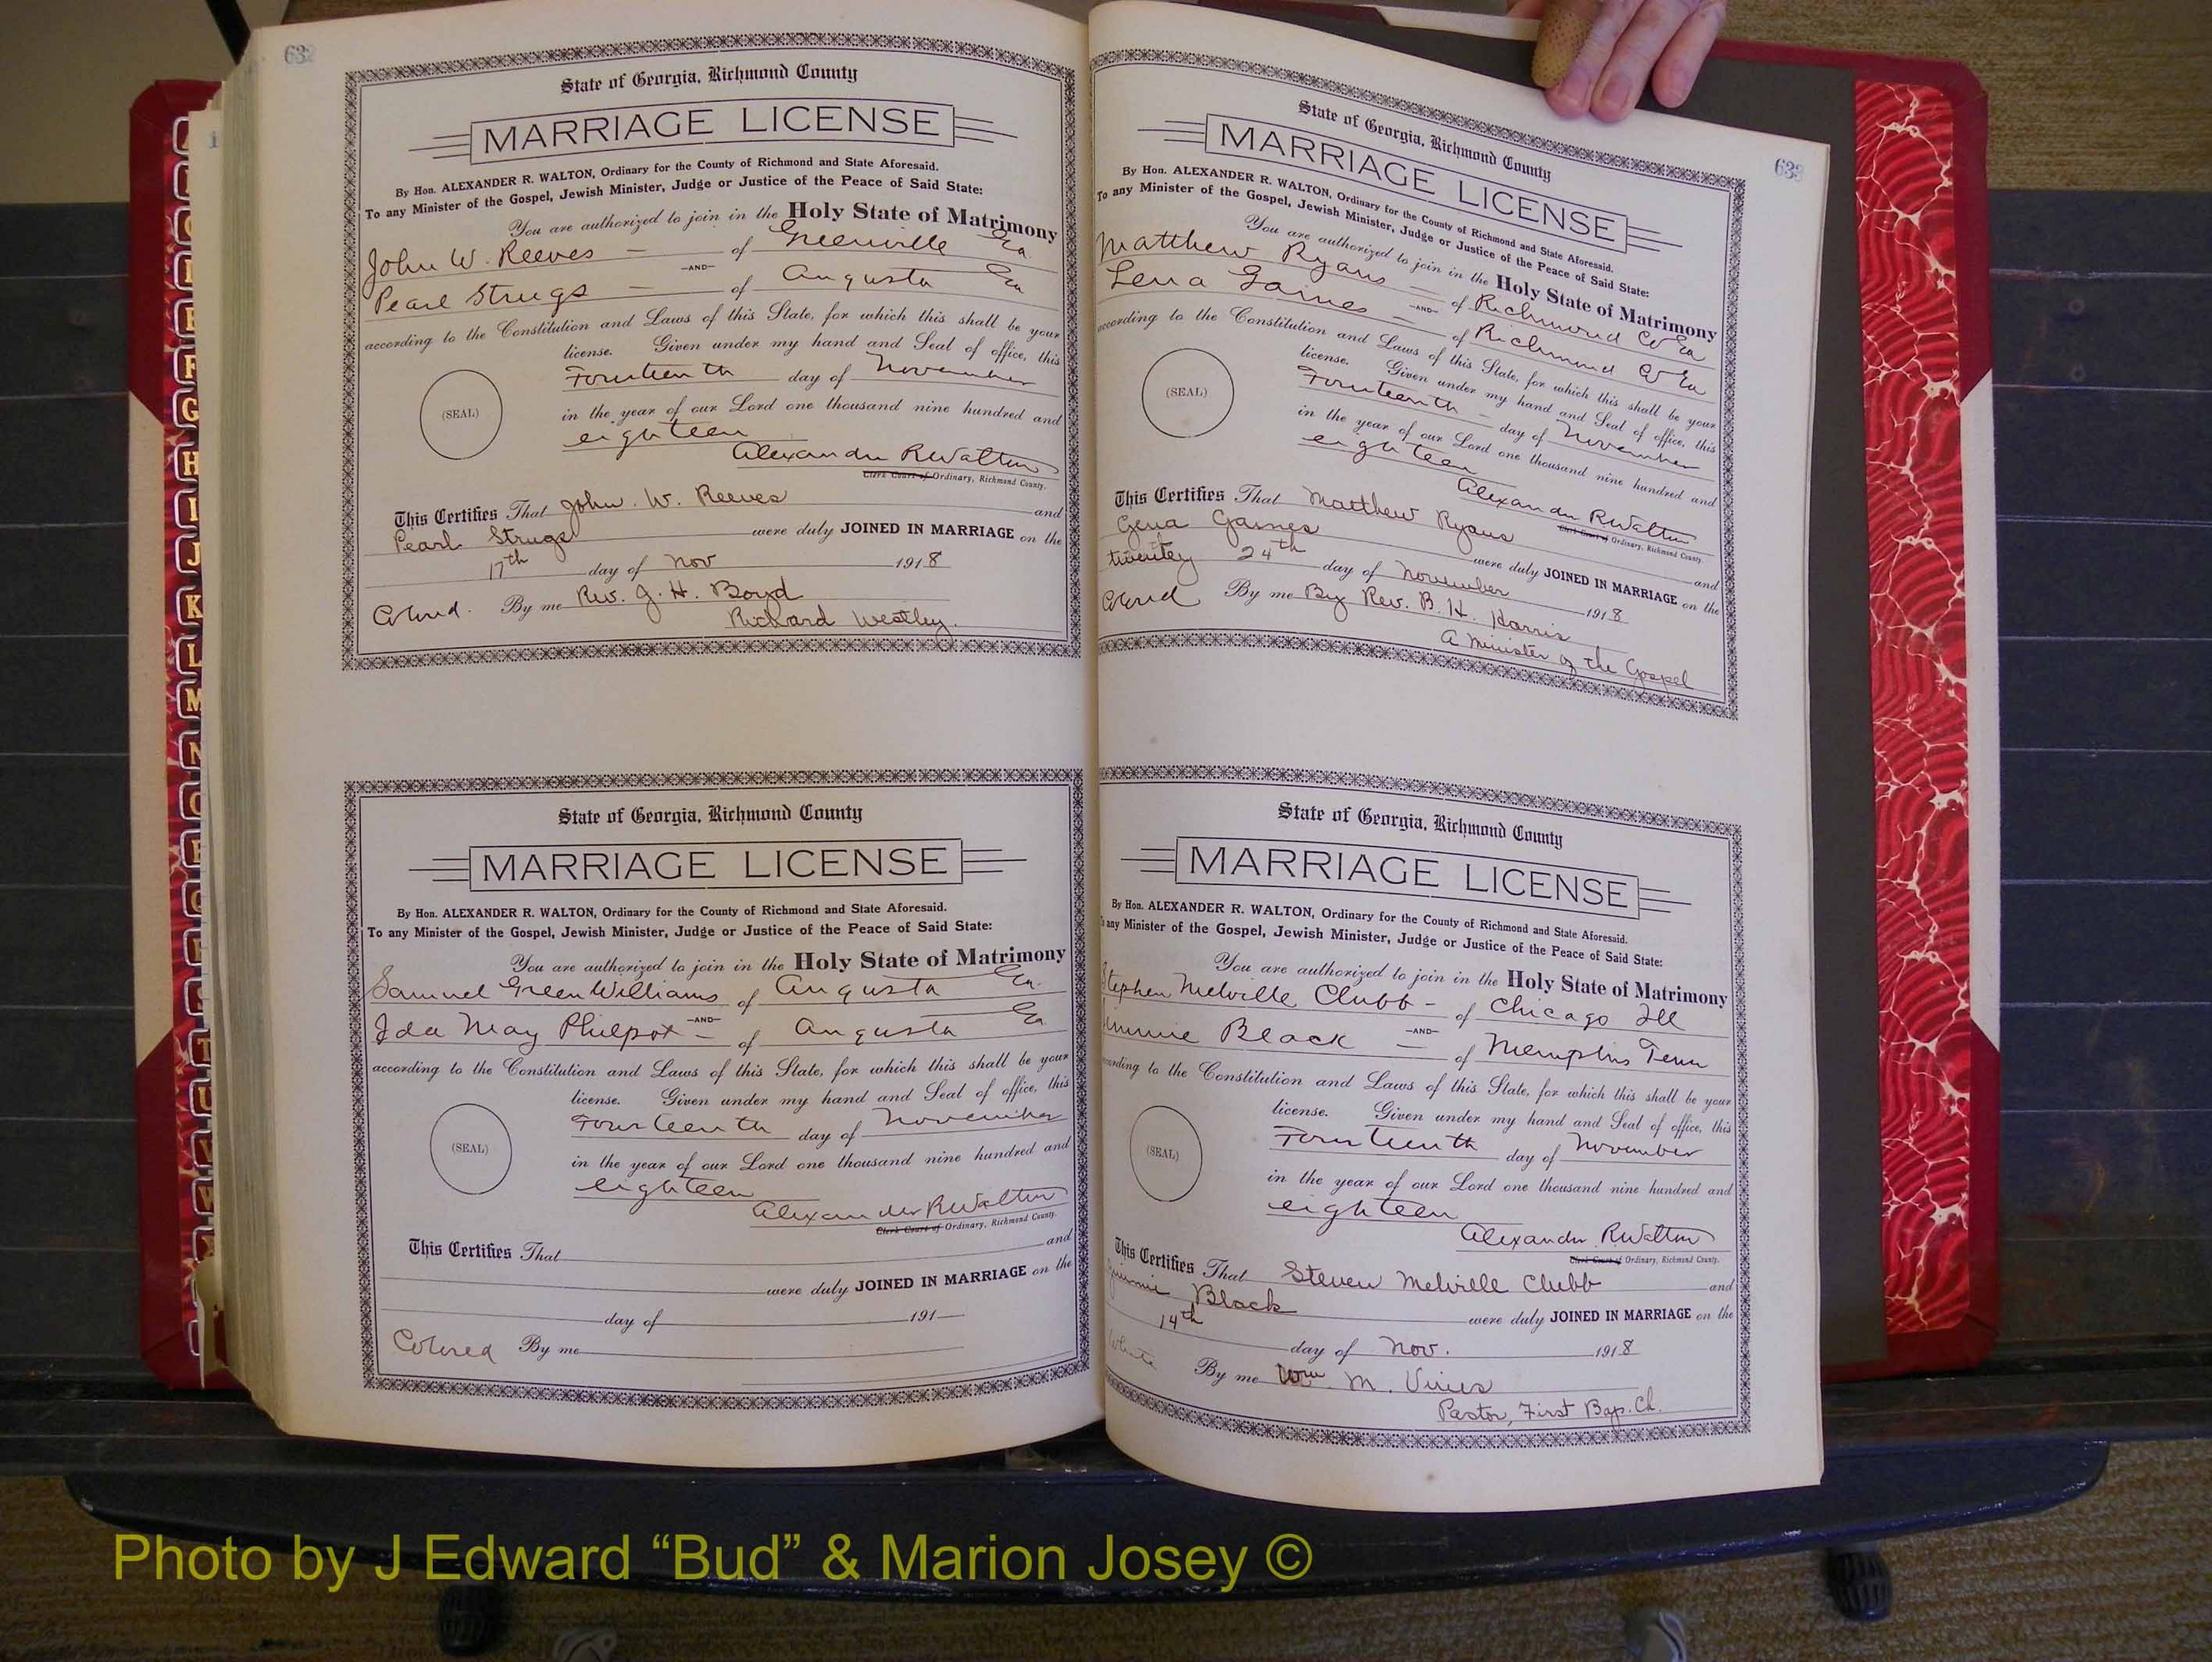 632
State of Georgia, Richmond County
MARRIAGE LICENSE
By Hon. ALEXANDER R. WALTON, Ordinary for the County of Richmond and State Aforesaid.
To any Minister of the Gospel, Jewish Minister, Judge or Justice of the Peace of Said State:
You are authorized to join in the Holy State of Matrimony
John W. Reeves — of Greenville Ga
—AND—
Pearl Strugs — of Augusta Ga
according to the Constitution and Laws of this State, for which this shall be your
license. Given under my hand and Seal of office, this
Fourteenth day of November
(SEAL)
in the year of our Lord one thousand nine hundred and
eighteen
Alexander R Walton
Clerk Court of Ordinary, Richmond County.
This Certifies That John. W. Reeves and
Pearl Strugs were duly JOINED IN MARRIAGE on the
17th day of Nov 1918
Colored. By me Rev. J. H. Boyd
Richard Westley.
State of Georgia, Richmond County
MARRIAGE LICENSE
By Hon. ALEXANDER R. WALTON, Ordinary for the County of Richmond and State Aforesaid.
To any Minister of the Gospel, Jewish Minister, Judge or Justice of the Peace of Said State:
You are authorized to join in the Holy State of Matrimony
Samuel Green Williams of Augusta Ga.
—AND—
Ida May Philpot — of Augusta Ga
according to the Constitution and Laws of this State, for which this shall be your
license. Given under my hand and Seal of office, this
Fourteenth day of November
(SEAL)
in the year of our Lord one thousand nine hundred and
eighteen
Alexander R Walton
Clerk Court of Ordinary, Richmond County.
This Certifies That and
were duly JOINED IN MARRIAGE on the
day of 191
Colored By me
633
State of Georgia, Richmond County
MARRIAGE LICENSE
By Hon. ALEXANDER R. WALTON, Ordinary for the County of Richmond and State Aforesaid.
To any Minister of the Gospel, Jewish Minister, Judge or Justice of the Peace of Said State:
You are authorized to join in the Holy State of Matrimony
Matthew Ryans — of Richmond Co Ga
—AND—
Lena Gaines — of Richmond Co Ga
according to the Constitution and Laws of this State, for which this shall be your
license. Given under my hand and Seal of office, this
Fourteenth — day of November
(SEAL)
in the year of our Lord one thousand nine hundred and
eighteen
Alexander R Walton
Clerk Court of Ordinary, Richmond County
This Certifies That Matthew Ryans and
Gena Gaines were duly JOINED IN MARRIAGE on the
24th day of November 1918
Colored By me By Rev. B. H. Harris
A Minister of the Gospel
State of Georgia, Richmond County
MARRIAGE LICENSE
By Hon. ALEXANDER R. WALTON, Ordinary for the County of Richmond and State Aforesaid.
any Minister of the Gospel, Jewish Minister, Judge or Justice of the Peace of Said State:
You are authorized to join in the Holy State of Matrimony
Stephen Melville Clubb — of Chicago Ill
—AND—
Black — of Memphis Tenn
according to the Constitution and Laws of this State, for which this shall be your
license. Given under my hand and Seal of office, this
Fourteenth day of November
(SEAL)
in the year of our Lord one thousand nine hundred and
eighteen
Alexander R Walton
Clerk Court of Ordinary, Richmond County.
This Certifies That Steven Melville Clubb and
Black were duly JOINED IN MARRIAGE on the
14th day of Nov. 1918
White By me Wm. M. Vines
Pastor, First Bap. Ch.
F
G
H
I
J
K
L
M
N
Photo by J Edward “Bud” & Marion Josey ©